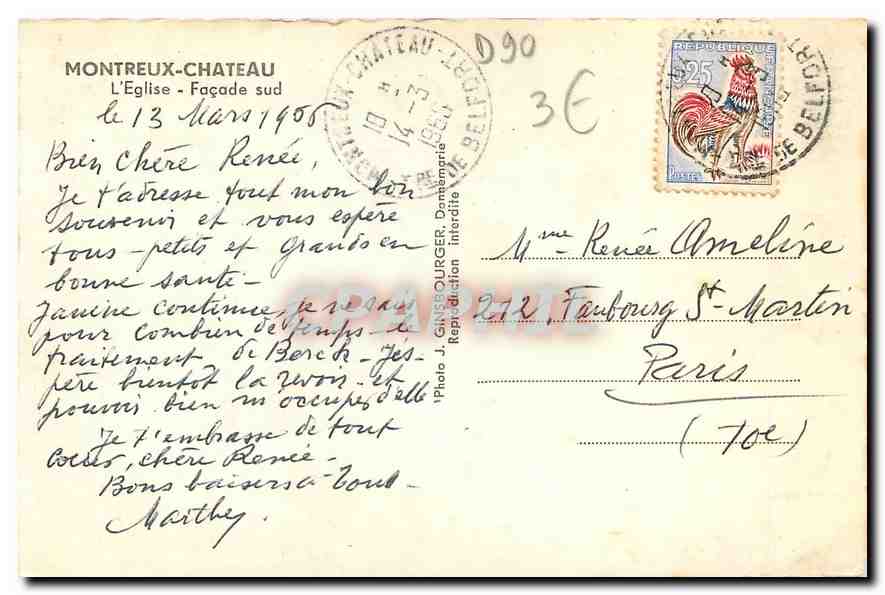 MONTREUX-CHATEAU
L'Eglise - Façade sud
le 13 Mars 1966
Bien chère Renée,
Je t'adresse tout mon bon
souvenir et vous espère
tous - petits et grands en
bonne santé -
Janine continue, je ne sais
pour combien de temps - le
traitement de Berck - J'es-
père bientôt la revoir - et
pouvoir bien m'occuper d'elle
Je t'embrasse de tout
coeur, chère Renée -
Bons baisers à tous -
Marthe.
MONTREUX-CHATEAU - TRE DE BELFORT
10 H
14 - 3
1966
D90
3€
REPUBLIQUE FRANÇAISE
0,25
POSTES
DE BELFORT
Photo J. GINSBOURGER, Dannemarie
Reproduction interdite
CPAPHIL
Mme Renée Ameline
212, Faubourg St-Martin
Paris
(10e)